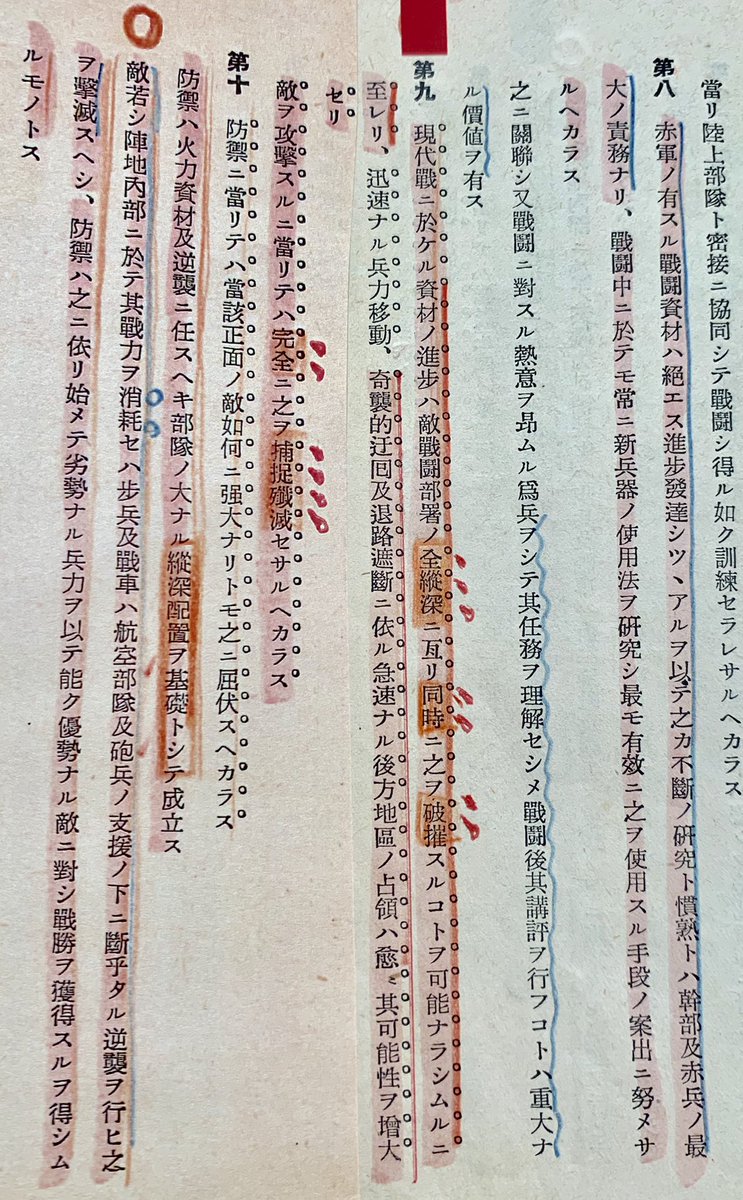 當リ陸上部隊ト密接ニ協同シテ戰鬪シ得ル如ク訓練セラレサルヘカラス
第八　赤軍ノ有スル戰鬪資材ハ絕エス進步發達シツヽアルヲ以テ之カ不斷ノ硏究ト慣熟トハ幹部及赤兵ノ最
大ノ責務ナリ、戰鬪中ニ於テモ常ニ新兵器ノ使用法ヲ硏究シ最モ有效ニ之ヲ使用スル手段ノ案出ニ努メサ
ルヘカラス
之ニ關聯シ又戰鬪ニ對スル熱意ヲ昂ムル爲兵ヲシテ其任務ヲ理解セシメ戰鬪後其講評ヲ行フコトハ重大ナ
ル價値ヲ有ス
第九　現代戰ニ於ケル資材ノ進步ハ敵戰鬪部署ノ全縱深ニ亙リ同時ニ之ヲ破摧スルコトヲ可能ナラシムルニ
至レリ、迅速ナル兵力移動、奇襲的迂囘及退路遮斷ニ依ル急速ナル後方地區ノ占領ハ愈〻其可能性ヲ增大
セリ
敵ヲ攻擊スルニ當リテハ完全ニ之ヲ捕捉殲滅セサルヘカラス
第十　防禦ニ當リテハ當該正面ノ敵如何ニ强大ナリトモ之ニ屈伏スヘカラス
防禦ハ火力資材及逆襲ニ任スヘキ部隊ノ大ナル縱深配置ヲ基礎トシテ成立ス
敵若シ陣地內部ニ於テ其戰力ヲ消耗セハ步兵及戰車ハ航空部隊及砲兵ノ支援ノ下ニ斷乎タル逆襲ヲ行ヒ之
ヲ擊滅スヘシ、防禦ハ之ニ依リ始メテ劣勢ナル兵力ヲ以テ能ク優勢ナル敵ニ對シ戰勝ヲ獲得スルヲ得シム
ルモノトス